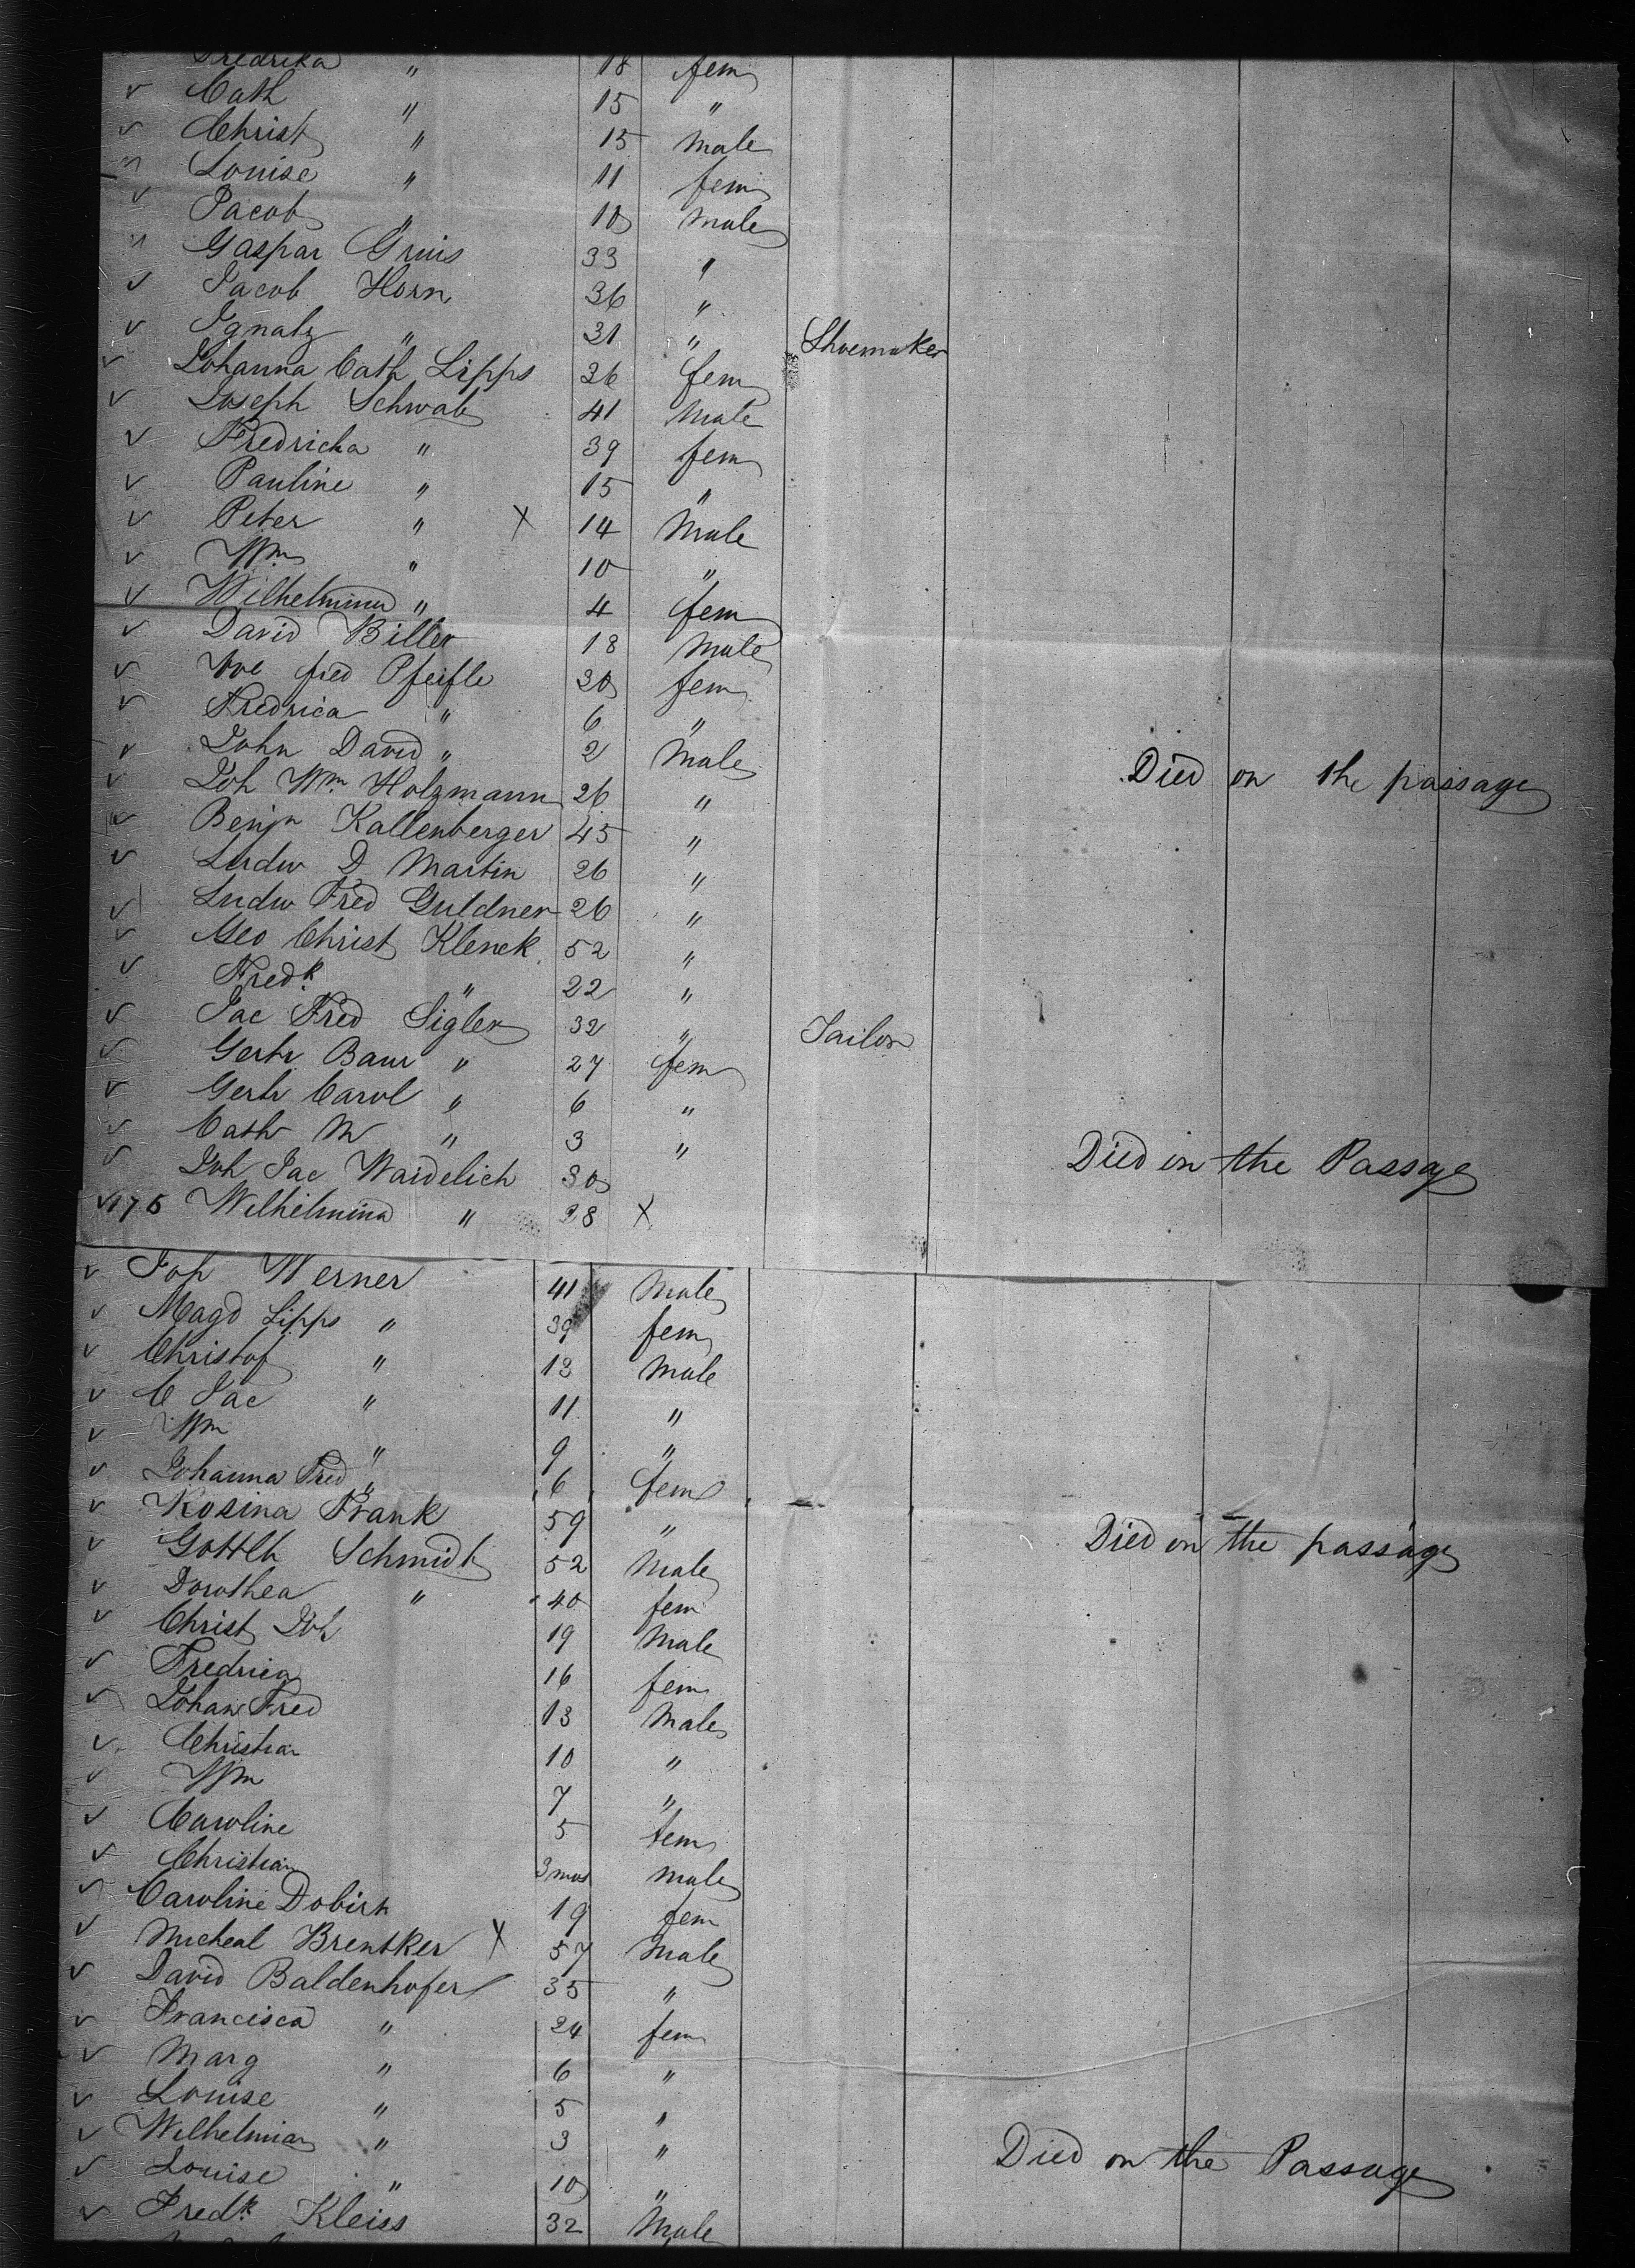 Fredrika " 18 fem
Cath " 15 "
Christ " 15 Male
Louise " 11 fem
Jacob " 10 Male
Gaspar Gruis 33 "
Jacob Horn 36 "
Ignatz " 31 " Shoemaker
Johanna Cath Lipps 26 fem
Joseph Schwab 41 Male
Fredricka " 39 fem
Pauline " 15 "
Peter " X 14 Male
Wm " 10 "
Wilhelmina " 4 fem
David Biller 18 Male
fred Pfeifle 30 fem
Fredrica " 6 "
John David " 2 Male Died on the passage
Joh Wm Holzmann 26 "
Benjn Kallenberger 45 "
Ludw D Martin 26 "
Ludw Fred Guldner 26 "
Geo Christ Klenck 52 "
Fredk " 22 "
Jac Fred Sigler 32 " Tailor
Gertr Baur " 27 fem
Gertr Carol " 6 "
Cath M " 3 " Died on the Passage
Joh Jac Waidelich 30
175 Wilhelmina " 28 X
Joh Werner 41 Male
Magd Lipps " 39 fem
Christof " 13 Male
C Jac " 11 "
Wm " 9 "
Johanna Fred " 6 fem
Rosina Frank 59 " Died on the passage
Gottlb Schmidt 52 Male
Dorothea " 40 fem
Christ Joh 19 Male
Fredrica 16 fem
Johan Fred 13 Male
Christian 10 "
Wm 7 "
Caroline 5 fem
Christian 3 mos Male
Caroline Dobirn 19 fem
Micheal Brentker X 57 Male
David Baldenhofer 35 "
Francisca " 24 fem
Marg " 6 "
Louise " 5 "
Wilhelmina " 3 " Died on the Passage
Louise " 10 "
Fredk Kleiss 32 Male